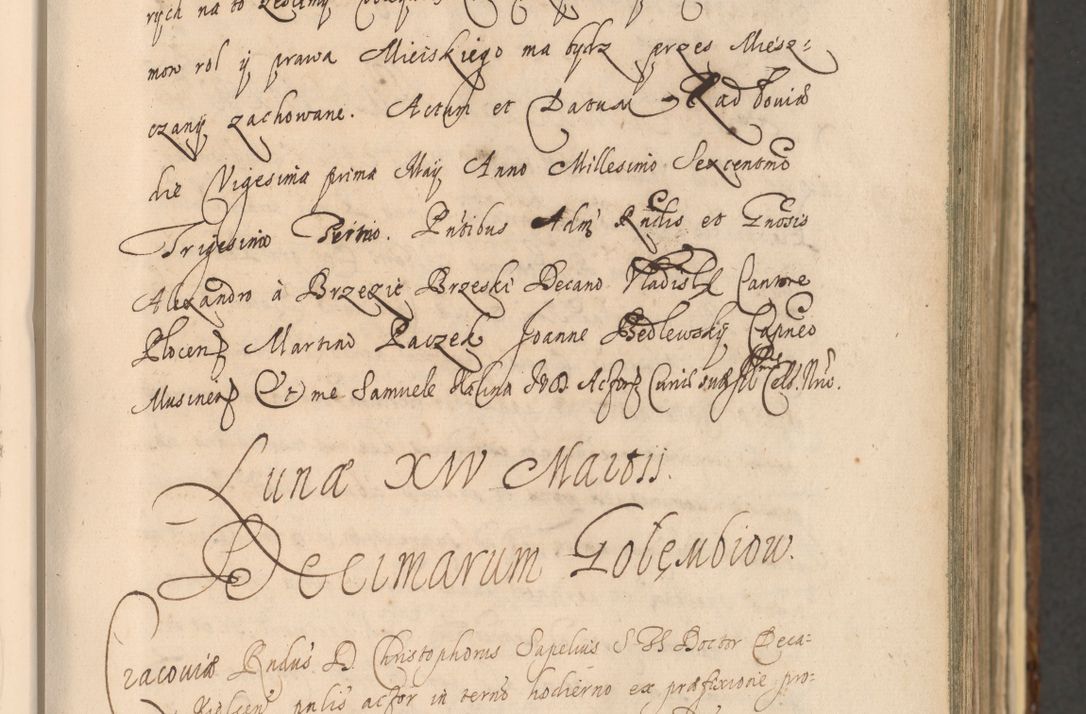 rych na to
mow rol ÿ prawa Mieiskiego ma bydz przes Miesz:
czanÿ zachowane. Actum et Datum Radlouiæ
die Vigesima prima Maÿ Anno Millesimo Sexcentmo
Trigesimo Tertio. Pntibus Adm Rndis et Gnosis
Alexandro à Brzezie Brzeski Decano Vladisl Cantore
Plocen Martino Paczek Joanne Bedlewskÿ Capneo
Musinen Et me Samuele Kalina Actor Cels. Nro.
Lunæ XIV Martii.
Decimarum Golęmbiow.
Cracouiæ Rndus D Christophorus Sapelius S Th Doctor Deca:
Kielcen pnlis actor in terno hodierno ex præfixione pro-